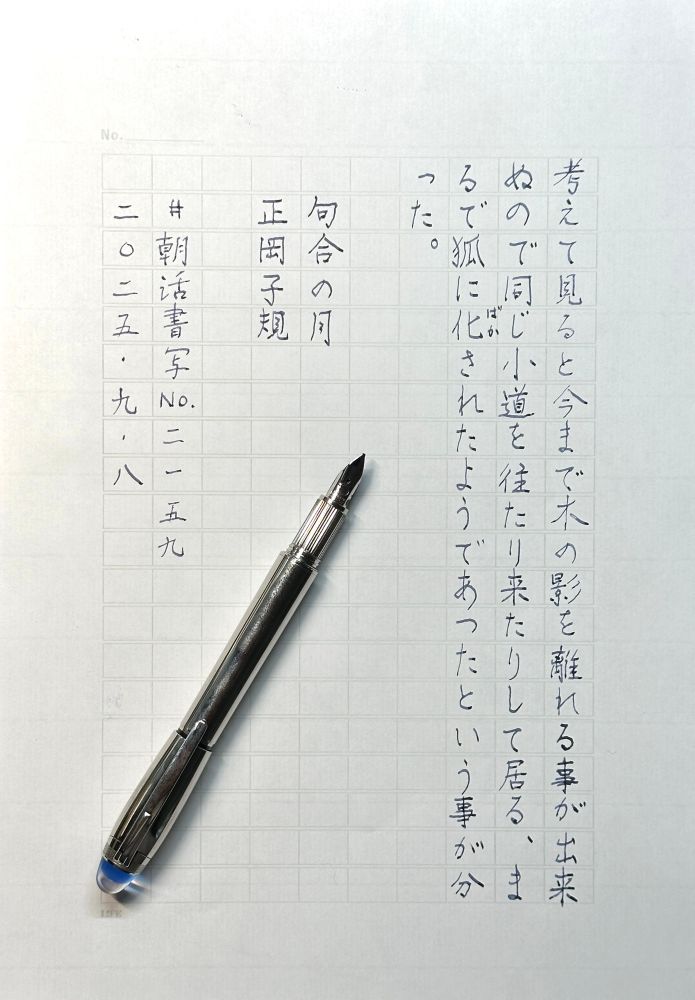 No.
考えて見ると今まで木の影を離れる事が出来
ぬので同じ小道を往たり来たりして居る、ま
るで狐に化されたようであったという事が分
ばか
った。
句合の月
正岡子規
#朝活書写No.二一五九
二〇二五.九.八
LIFE